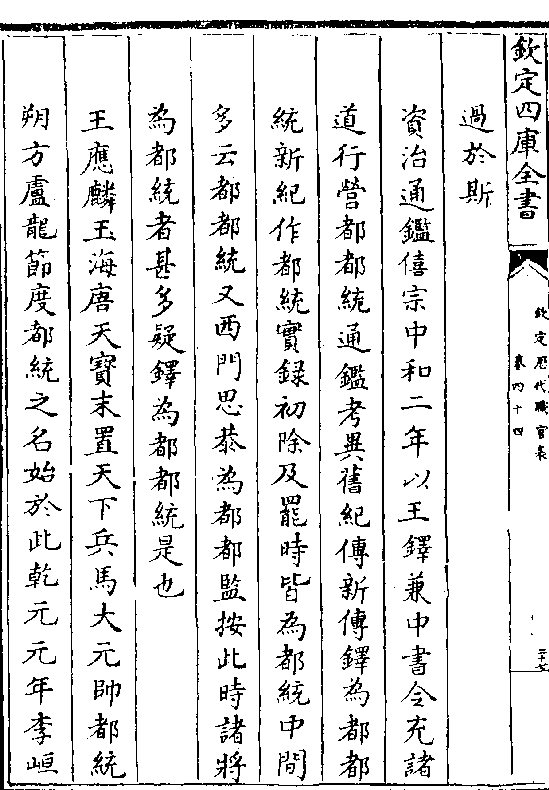 欽定四庫全書
欽定歷代職官表
卷四十四
二十七
過於斯
資治通鑑僖宗中和二年以王鐸兼中書令充諸
道行營都都統通鑑考異舊紀傳新傳鐸為都都
統新紀作都統實錄初除及罷時皆為都統中間
多云都都統又西門思恭為都都監按此時諸將
為都統者甚多疑鐸為都都統是也
王應麟玉海唐天寶末置天下兵馬大元帥都統
朔方盧龍節度都統之名始於此乾元元年李峘